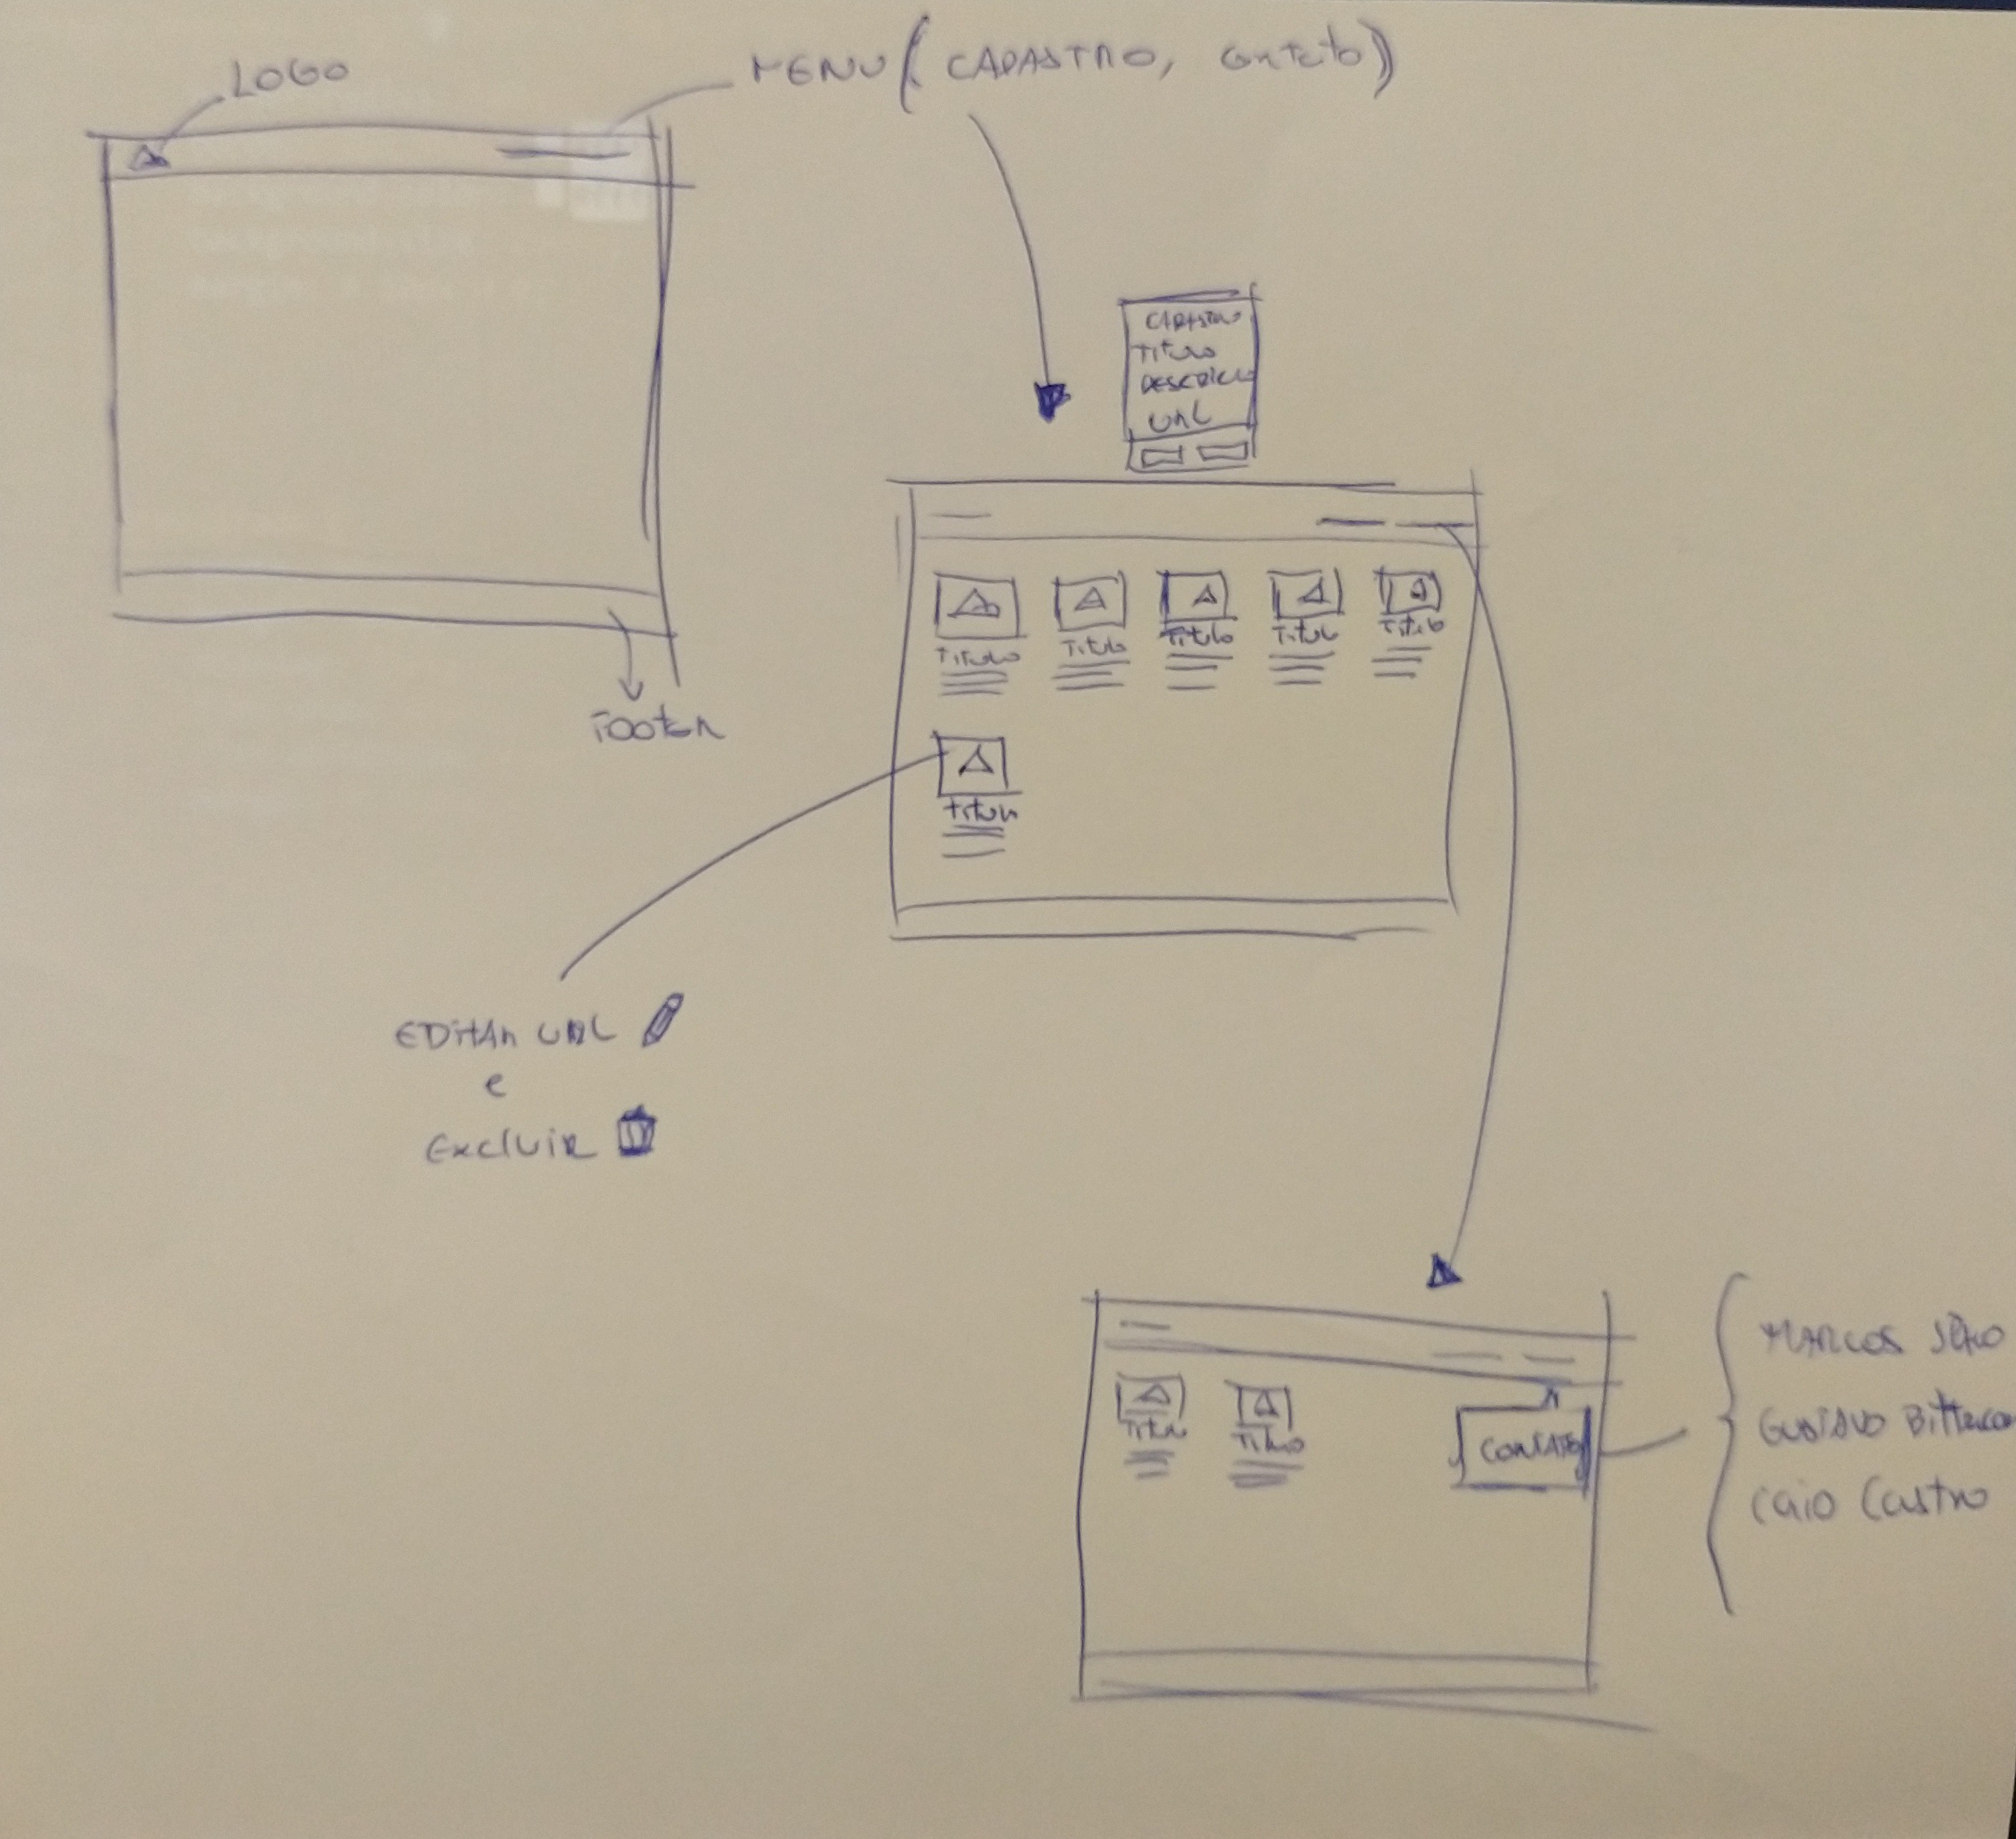 LOGO
MENU (CADASTRO, contato)
CADASTRO
Titulo
DESCRICAO
URL
Titulo Titulo Titulo Titulo Titulo
Titulo
Footer
EDITAR URL
e
Excluir
Titulo Titulo
CONTATO
MARCOS
GUSTAVO
Caio Castro